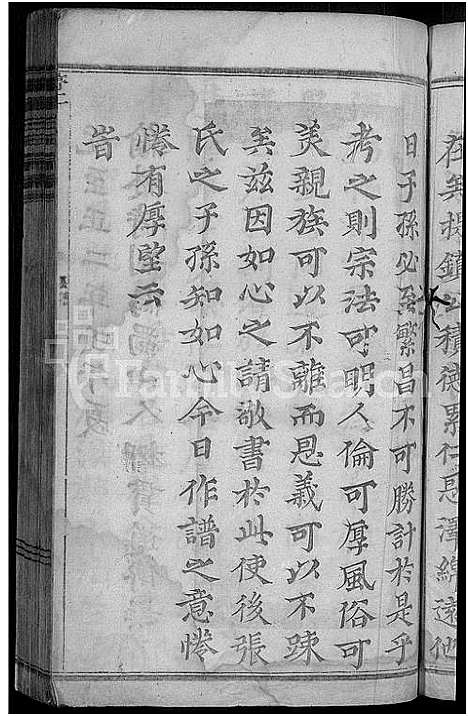 在矣提鎮公積德累仁恩澤綿遠他
日子孫必至繁昌不可勝計於是乎
考之則宗法可明人倫可厚風俗可
美親族可以不離而恩義可以不踈
矣茲因如心之請敬書於此使後張
氏之子孫知如心今日作譜之意惓
惓有厚望云
旹
FamilySearch